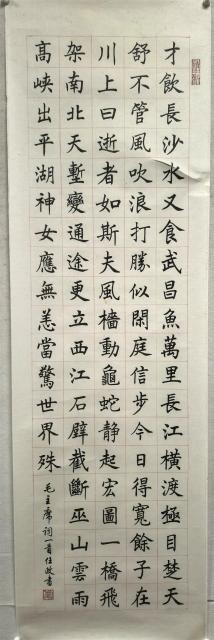 才飲長沙水又食武昌魚萬里長江橫渡極目楚天
舒不管風吹浪打勝似閑庭信步今日得寬餘子在
川上曰逝者如斯夫風檣動龜蛇静起宏圖一橋飛
架南北天塹變通途更立西江石壁截斷巫山雲雨
高峽出平湖神女應無恙當驚世界殊
毛主席詞一首任政書